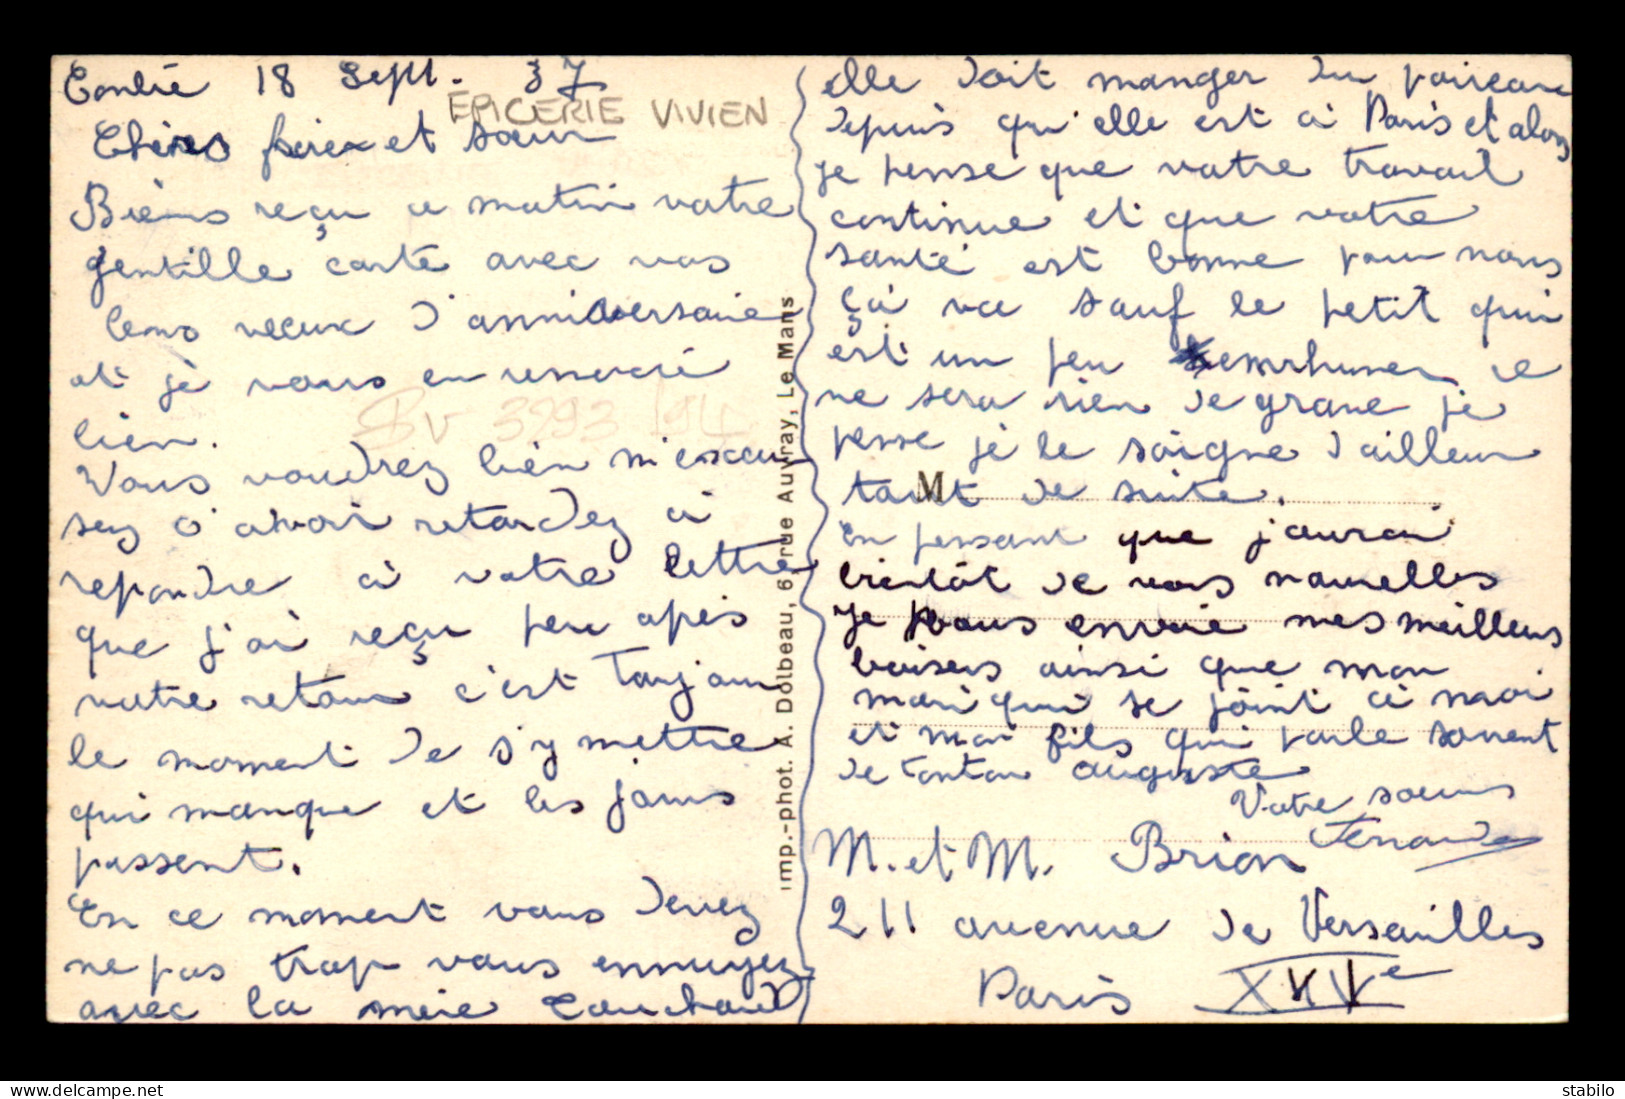 Contré 18 Sept. 37
EPICERIE VIVIEN
Chères frère et sœur
Biens reçu ce matin votre
gentille carte avec vos
bons vœux d'anniversaire
et je vous en remercie
bien.
Vous voudrez bien m'excu
sez d'avoir retardez à
repondre à votre lettre
que j'ai reçu peu apès
votre retour c'est toujour
le moment de s'y mettre
qui manque et les jours
passent.
En ce moment vous devez
ne pas trop vous ennuyez
avec la mère Couchard
elle doit manger du poireau
depuis qu'elle est à Paris et alors
je pense que votre travail
continue et que votre
santé est bonne pour nous
çà va sauf le petit qui
est un peu enrhumer ce
ne sera rien de grave je
pense je le soigne d'ailleur
tout de suite.
M
En pensant que j'aurai
bientôt de vos nouvelles
Je vous envoie mes meilleurs
baisers ainsi que mon
mari qui se joint à moi
et mon fils qui parle souvent
de tonton auguste
Votre sœur
Fernande
M. et M. Brion
211 avenue de Versailles
Paris XVIe
imp.-phot. A. Dolbeau, 6, rue Auvray, Le Mans
BV 3293
https://www.delcampe.net
stabilo